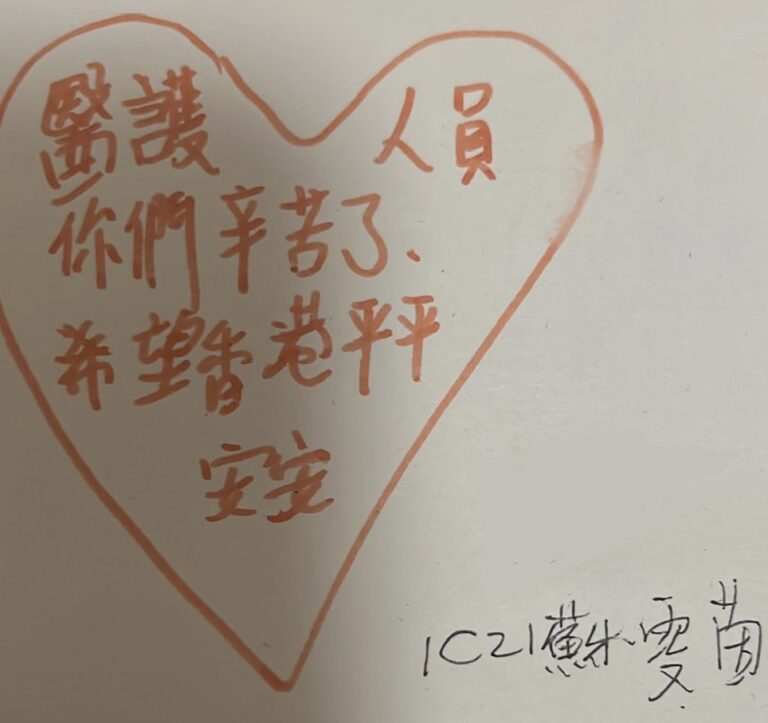 醫護 人員
你們辛苦了、
希望香港平平
安安
1C21蘇雯茵